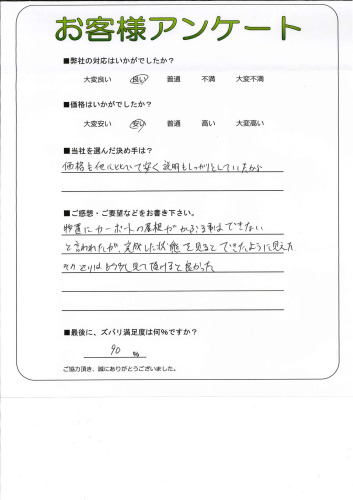 お客様アンケート
■弊社の対応はいかがでしたか?
大変良い 良い 普通 不満 大変不満
■価格はいかがでしたか?
大変安い 安い 普通 高い 大変高い
■当社を選んだ決め手は?
価格も他にくらべて安く説明もしっかりとしていたから
■ご感想・ご要望などをお書き下さい。
物置にカーポートの屋根がかぶる事はできない
と言われたが、完成した状態を見るとできたように見えた
もう少し見て頂けると良かった
■最後に、ズバリ満足度は何%ですか?
90 %
ご協力頂き、誠にありがとうございました。